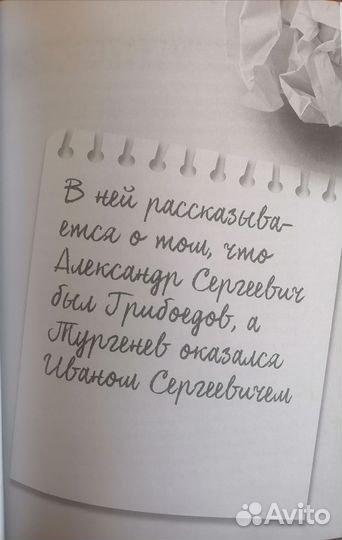 В ней рассказыва-
ется о том, что
Александр Сергеевич
был Грибоедов, а
Тургенев оказался
Иваном Сергеевичем
Avito